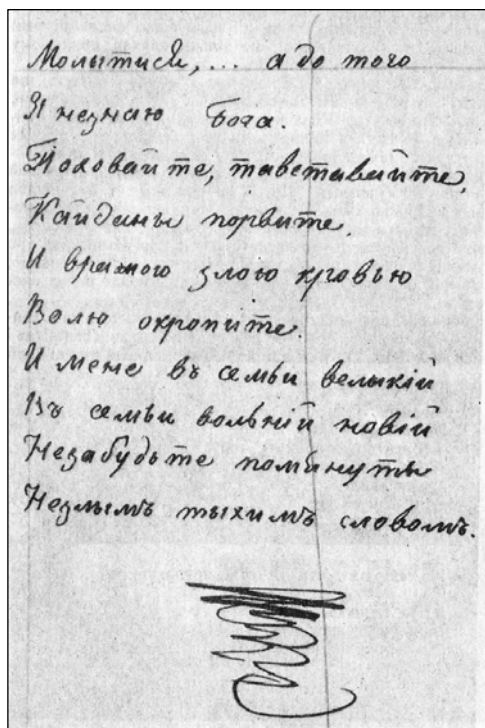 Молытися, ... а до того
Я незнаю Бога.
Поховайте, тавставайте,
Кайданы порвите.
И вражого злою кровью
Волю окропите.
И мене въ семьи велыкій
Въ семьи вольній новій
Незабудьте помянуты
Незлымъ тыхимъ словомъ.